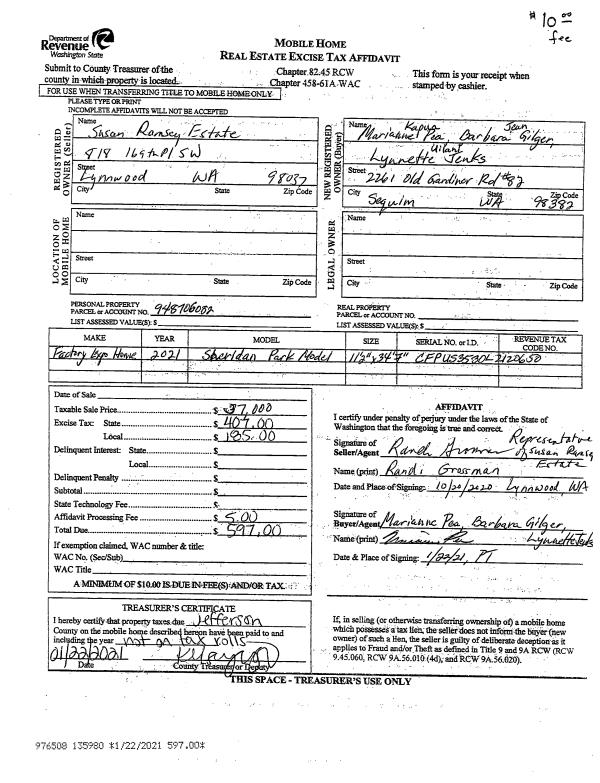 $ 10.00
fee
Department of
Revenue
Washington State
MOBILE HOME
REAL ESTATE EXCISE TAX AFFIDAVIT
Submit to County Treasurer of the
county in which property is located.
Chapter 82.45 RCW
Chapter 458-61A WAC
This form is your receipt when
stamped by cashier.
FOR USE WHEN TRANSFERRING TITLE TO MOBILE HOME ONLY
PLEASE TYPE OR PRINT
INCOMPLETE AFFIDAVITS WILL NOT BE ACCEPTED
REGISTERED
OWNER (Seller)
Name
Susan Ramsey Estate
818 169th Pl SW
Street
Lynnwood WA 98037
City State Zip Code
NEW REGISTERED
OWNER (Buyer)
Name Kapua Jean
Marianne Pea Barbara Gilger,
Lynnette Jenks
Street 2261 Old Gardiner Rd #82
City State Zip Code
Sequim WA 98382
LOCATION OF
MOBILE HOME
Name
Street
City State Zip Code
LEGAL OWNER
Name
Street
City State Zip Code
PERSONAL PROPERTY
PARCEL or ACCOUNT NO. 948706082
LIST ASSESSED VALUE(S): $
REAL PROPERTY
PARCEL or ACCOUNT NO.
LIST ASSESSED VALUE(S): $
MAKE YEAR MODEL SIZE SERIAL NO. or I.D. REVENUE TAX CODE NO.
Factory Expo Home 2021 Sheridan Park Model 2120650
Date of Sale
Taxable Sale Price $ 37,000
Excise Tax: State $ 407.00
Local $ 185.00
Delinquent Interest: State $
Local $
Delinquent Penalty $
Subtotal $
State Technology Fee $
Affidavit Processing Fee $ 5.00
Total Due $ 597.00
If exemption claimed, WAC number & title:
WAC No. (Sec/Sub)
WAC Title
A MINIMUM OF $10.00 IS DUE IN FEE(S) AND/OR TAX.
AFFIDAVIT
I certify under penalty of perjury under the laws of the State of
Washington that the foregoing is true and correct.
Signature of
Seller/Agent Randi Grossman Representative of Susan Ramsey Estate
Name (print) Randi Grossman
Date and Place of Signing: 10/20/2020 Lynnwood WA
Signature of
Buyer/Agent Marianne Pea, Barbara Gilger,
Name (print) Lynnette Jenks
Date & Place of Signing: 1/22/21, PT
TREASURER'S CERTIFICATE
I hereby certify that property taxes due Jefferson
County on the mobile home described hereon have been paid to and
including the year not on tax rolls
01/22/2021
Date County Treasurer or Deputy
If, in selling (or otherwise transferring ownership of) a mobile home
which possesses a tax lien, the seller does not inform the buyer (new
owner) of such a lien, the seller is guilty of deliberate deception as it
applies to Fraud and/or Theft as defined in Title 9 and 9A RCW (RCW
9.45.060, RCW 9A.56.010 (4d), and RCW 9A.56.020).
THIS SPACE - TREASURER'S USE ONLY
976508 135980 *1/22/2021 597.00*